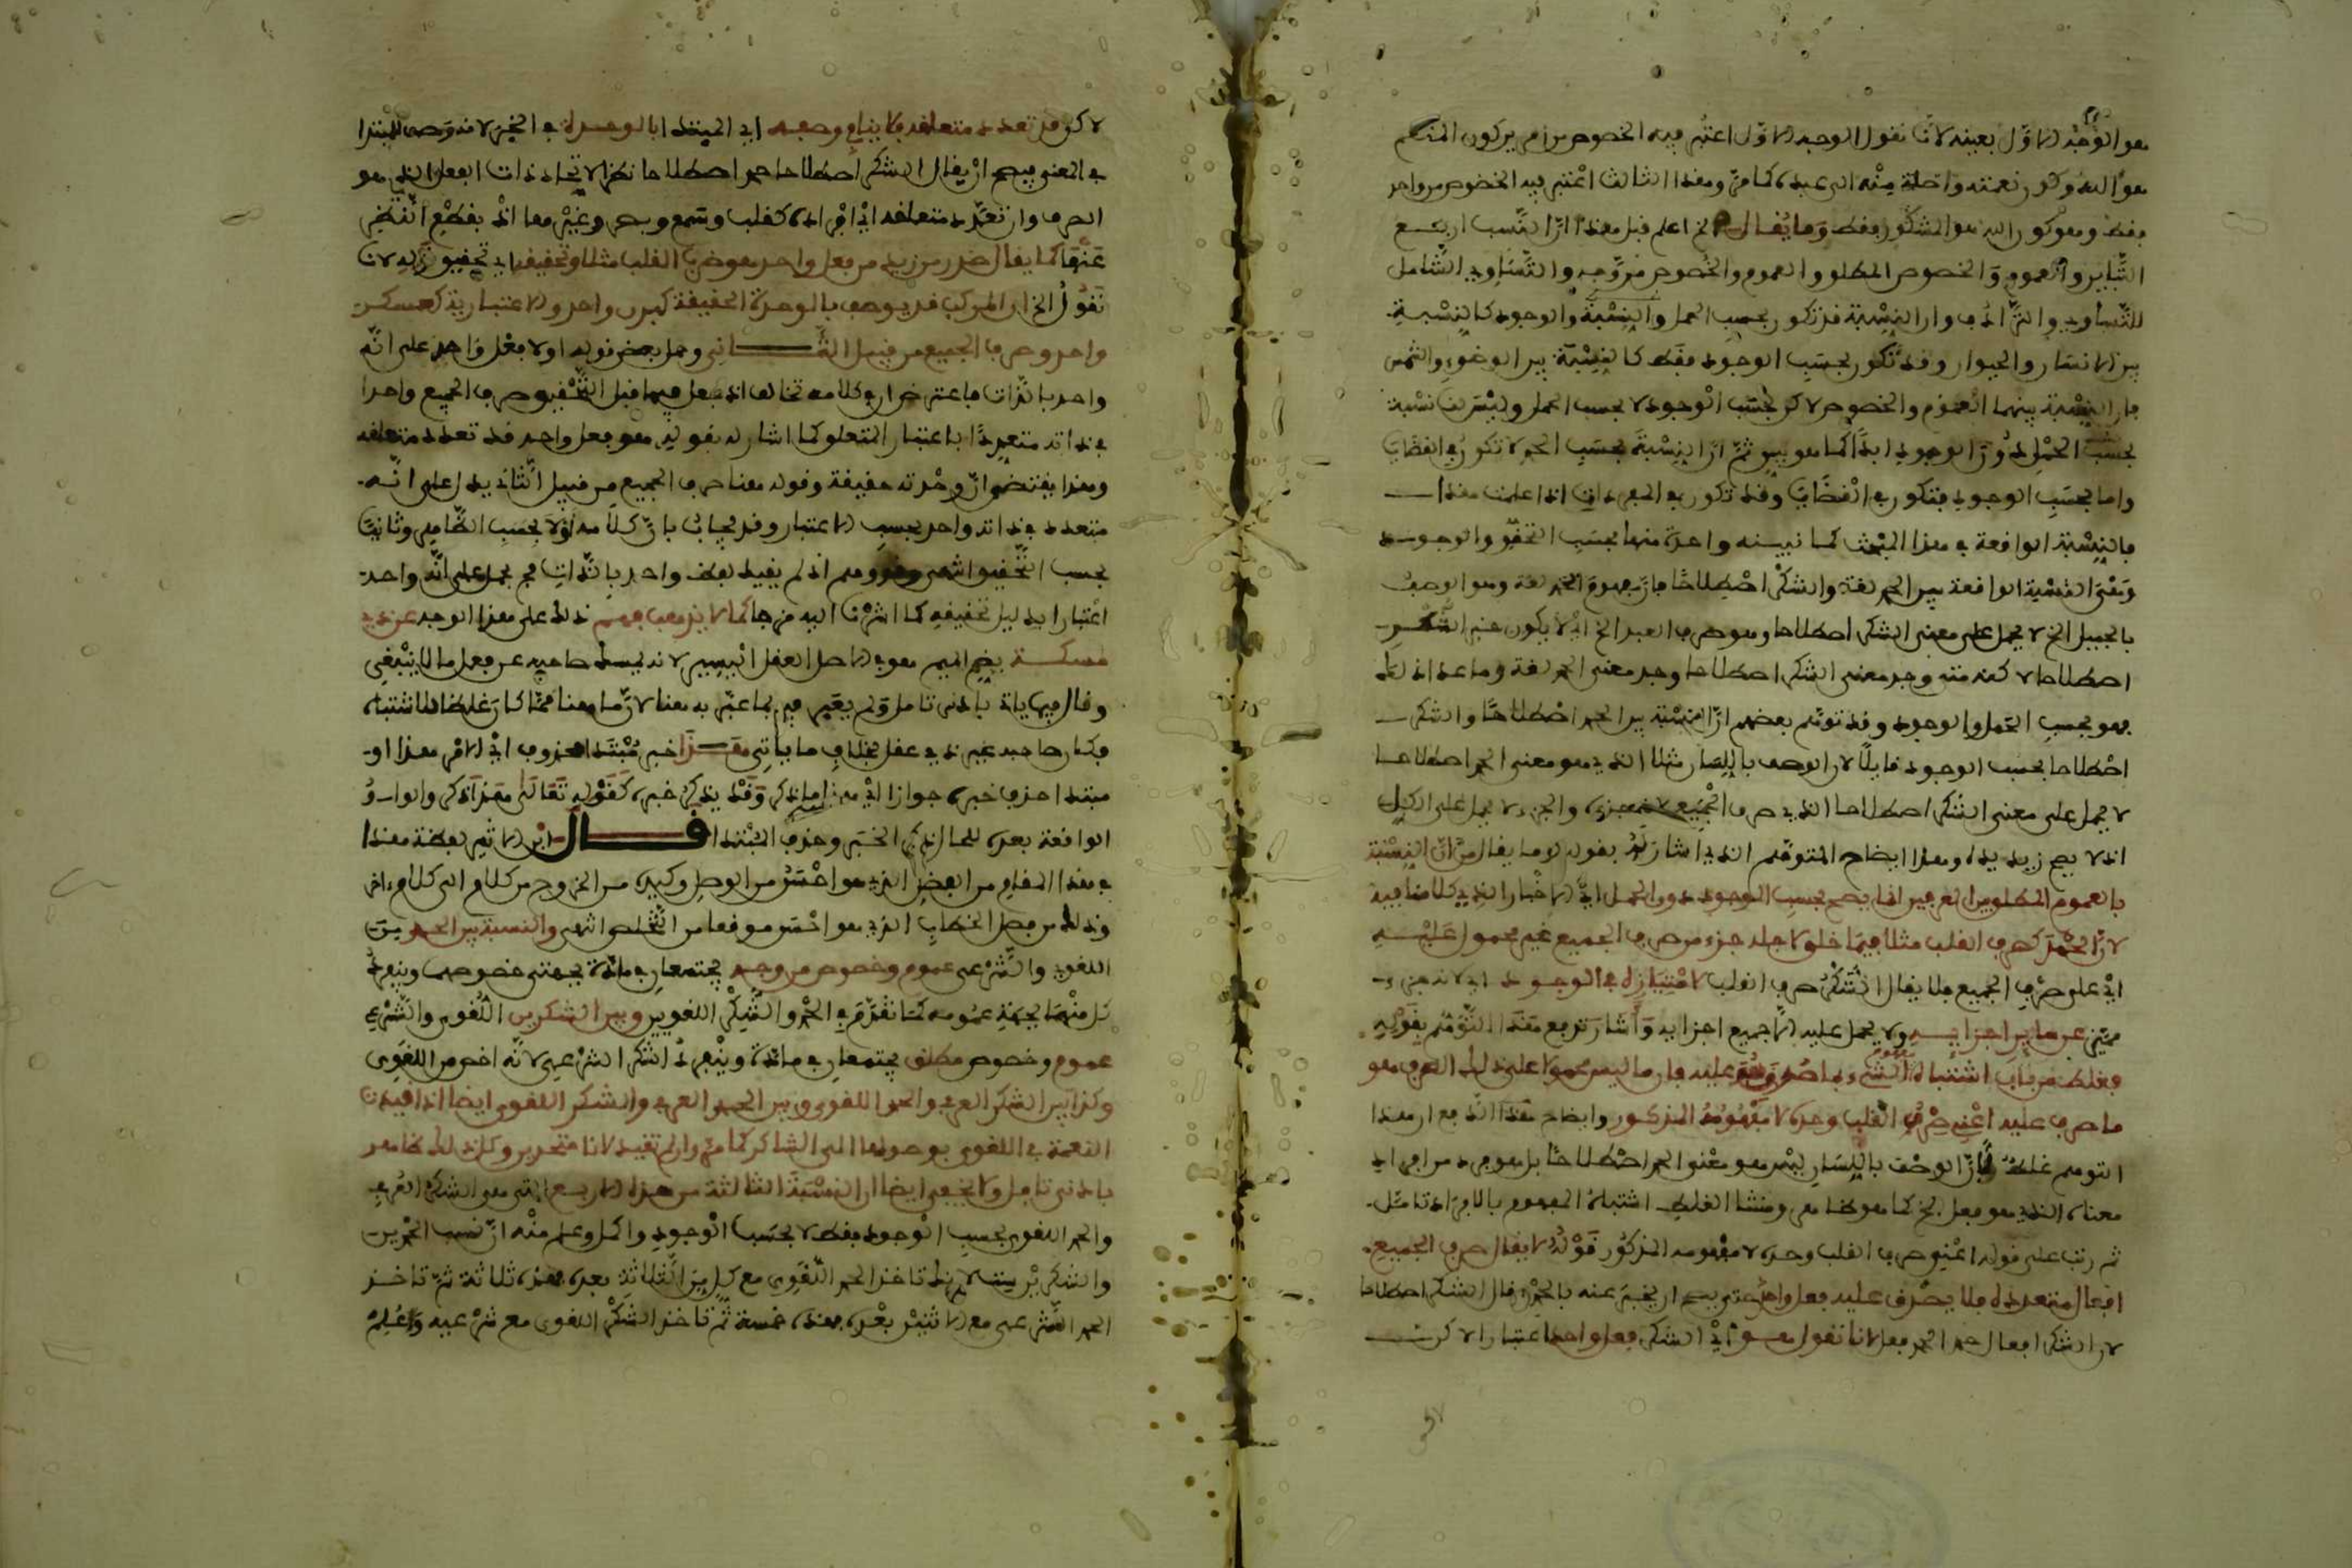 هو الوجه الأول بعينه لأنا نقول الوجه الأول اعتبر فيه الخصوص من أمرين كون المنعم
هو الله وكون نعمته واصلة منه الى عبده كما مر وهذا الثالث اعتبر فيه الخصوص من واحد
فقط وهو كون الله هو المشكور فقط وما يقال الخ اعلم قبل هذا ان النسب اربع
التباين والعموم والخصوص المطلق والعموم والخصوص من وجه والتساوي الشامل
للتساوي والترادف وان النسبة قد تكون بحسب الحمل والنسبة والوجود كالنسبة
بين الانسان والحيوان وقد تكون بحسب الوجود فقط كالنسبة بين الوضوء والشمس
فان النسبة بينهما العموم والخصوص لاكن بحسب الوجود لا بحسب الحمل وليس لنا نسبة
بحسب الحمل دون الوجود ابدا كما هو بين ثم ان النسبة بحسب الحمل لا تكون في القضايا
واما بحسب الوجود فتكون في القضايا وقد تكون في المفردات اذا علمت هذا
فالنسبة الواقعة في هذا المبحث كما نبينه واحدة منها بحسب التحقق والوجود
وهي النسبة الواقعة بين الحمد لغة والشكر اصطلاحا فان مفهوم الحمد لغة وهو الوصف
بالجميل الخ لا يحمل على معنى الشكر اصطلاحا وهو صرف العبد الخ اذ لا يكون خبر الشكر
اصطلاحا لاكنه متى وجد معنى الشكر اصطلاحا وجد معنى الحمد لغة وما عدا ذلك
فهو بحسب الحمل والوجود وقد توهم بعضهم ان النسبة بين الحمد اصطلاحا والشكر
اصطلاحا بحسب الوجود قايلا لان الوصف باللسان مثلا الذي هو معنى الحمد اصطلاحا
لا يحمل على معنى الشكر اصطلاحا الذي صرف الجميع لانه جزءه والجزء لا يحمل على الكل
اذ لا يصح زيد يده وهذا ايضاح المتوهم الذي اشار له بقوله وما يقال من ان النسبة
بالعموم المطلق بين العرفيين انما يصح بحسب الوجود دون الحمل اي الاخبار الذي كلامنا فيه
لان الحمد كصرف القلب مثلا فيما خلق لاجله جزء من صرف الجميع غير محمول عليه
اي على صرف الجميع فلا يقال الشكر صرف القلب لامتيازه في الوجود اي لانه جزء
مميز عن ساير اجزايه ولا يحمل عليه الا جميع اجزايه واشار لدفع هذا التوهم بقوله
فغلط من باب اشتباه مفهوم الشيء بما صدق هو عليه فان ما ليس محمولا على ذلك الصرف هو
ما صرف عليه اعني صرف القلب وحده لا مفهومه المذكور وايضاح هذا الدفع ان هذا
التوهم غلط فان الوصف باللسان ليس هو معنى الحمد اصطلاحا بل هو فرد من افراد
معناه الذي هو فعل الخ كما هو ظاهر ومنشا الغلط اشتباه المفهوم بالافراد تامل
ثم رتب على قوله اعني صرف القلب وحده لا مفهومه المذكور قوله لا يقال صرف الجميع
افعال متعددة فلا يصدق عليه فعل واحد حتى يصح ان يخبر عنه بالحمد فيقال الشكر اصطلاحا
لان الشكر افعال حمد الحمد فعل لانا نقول هو اي الشكر فعل واحد اعتبارا لاكن
لاكن قد تعدد متعلقه فلا ينافي وصفه اي المبتدا بالوحدة في الخبر لانه وصف للمبتدا
في المعنى فيصح ان يقال الشكر اصطلاحا حمد اصطلاحا نظرا لاتحاد ذات الفعل الذي هو
الصرف وان تعدد متعلقه اي افراده كقلب وسمع وبصر وغيرها اذ بقطع النظر
عنها كما يقال صدر من زيد فعل واحد هو صرف القلب مثلا وتحقيقه اي تحقيق ذلك لانا
نقول الخ ان المركب قد يوصف بالوحدة الحقيقية كبدن واحد والاعتبارية كعسكر
واحد وصرف الجميع من قبيل الثاني وحمل بعض قوله اولا فعل واحد على انه
واحد بالذات فاعترض ان في كلامه تخالف اذ جعل فيما قبل التحقيق صرف الجميع واحدا
في ذاته متعددا باعتبار المتعلق كما اشار له بقوله هو فعل واحد قد تعدد متعلقه
وهذا يقتضي ان وحدته حقيقة وقوله هنا صرف الجميع من قبيل الثاني يدل على انه
متعدد في ذاته واحد بحسب الاعتبار وقد يجاب بان كلامه اولا بحسب الظاهر وثانيا
بحسب التحقيق انتهى وهو وهم اذ لم يقيد بقوله واحد بالذات فيحمل على انه واحد
اعتبارا بدليل تحقيقه كما اشرنا اليه مزجا كما لا يذهب فهم ذلك على هذا الوجه عن ذي
مسكة بضم الميم هو في الاصل العقل اليسير لانه يمسك صاحبه عن فعل ما لا ينبغي
وقال فيما ياتي بادنى تامل ولم يعبر فيه بما عبر به هنا لان ما هنا مما كان غلطا للاشتباه
فكان صاحبه غير ذي عقل بخلاف ما ياتي هذا خبر مبتدا محذوف اي الامر هذا او
مبتدا حذف خبره جوازا اي هذا ما ذكر وقد يذكر خبره كقوله تعالى هذا ذكر والواو
الواقعة بعده للحال ذكر الخبر وحذف المبتدا قال ابن الاثير لفظة هذا
في هذا المقام من الفصل الذي هو احسن من الوصل وكيدة من الخروج من كلام الى كلام اخر
وذلك من فصل الخطاب الذي هو احسن موقعا من التخلص انتهى والنسبة بين الحمدين
اللغوي والشرعي عموم وخصوص من وجه يجتمعان في مادة بجهتي خصوصهما وينفرد
كل منهما بجهة عمومه كما تقدم في الحمد والشكر اللغويين وبين الشكرين اللغوي والشرعي
عموم وخصوص مطلق يجتمعان في مادة وينفرد الشكر الشرعي لانه اخص من اللغوي
وكذا بين الشكر العرفي والحمد اللغوي وبين الحمد العرفي والشكر اللغوي ايضا اذا قيدنا
النعمة في اللغوي بوصولها الى الشاكر كما مر وان لم تقيد لانا متحدين وكل ذلك ظاهر
بادنى تامل ولا يخفى ايضا ان النسبة الثالثة من هذه الاربع التي هي الشكر العرفي
والحمد اللغوي بحسب الوجود فقط لا بحسب الوجود والحمل وعلم منه ان نسب الحمدين
والشكرين ست لانك تاخذ الحمد اللغوي مع كل من الثلاثة بعده فهذه ثلاثة ثم تاخذ
الحمد الشرعي مع الاثنين بعده فهذه خمسة ثم تاخذ الشكر اللغوي مع شرعيه واعلم